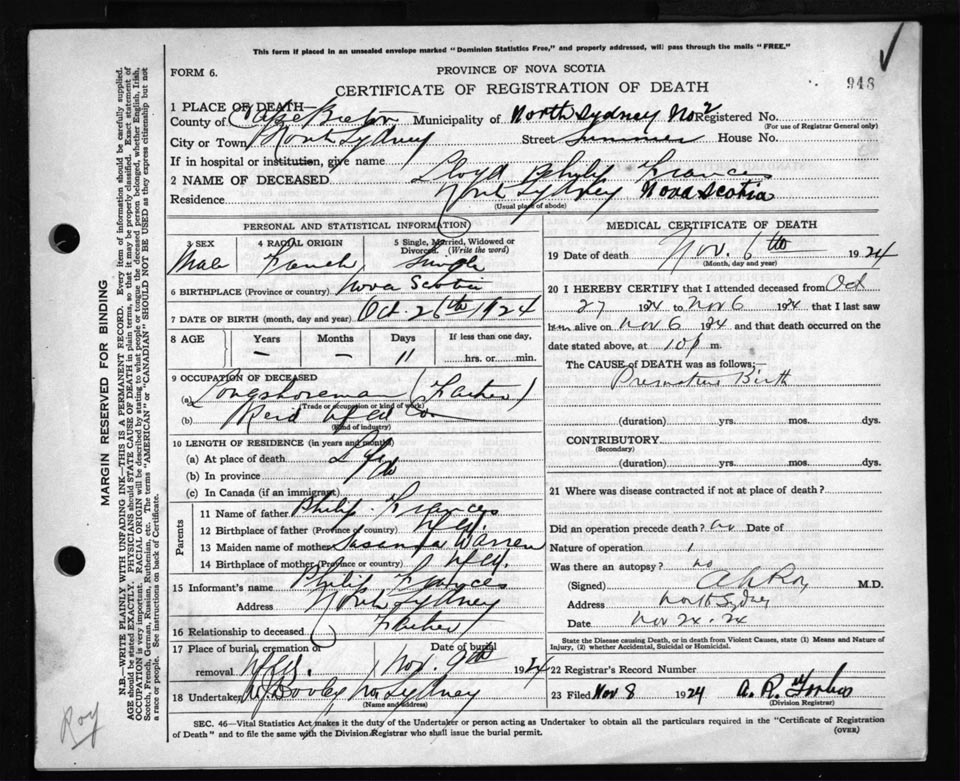 This form if placed in an unsealed envelope marked "Dominion Statistics Free," and properly addressed, will pass through the mails "FREE."
FORM 6.
PROVINCE OF NOVA SCOTIA
948
CERTIFICATE OF REGISTRATION OF DEATH
1 PLACE OF DEATH—
County of Cape Breton Municipality of North Sydney No 2 Registered No.
(For use of Registrar General only)
City or Town North Sydney Street Summer House No.
If in hospital or institution, give name
2 NAME OF DECEASED Lloyd Philip Frances
Residence North Sydney Nova Scotia
(Usual place of abode)
PERSONAL AND STATISTICAL INFORMATION
3 SEX 4 RACIAL ORIGIN 5 Single, Married, Widowed or Divorced (Write the word)
Male French Single
6 BIRTHPLACE (Province or country) Nova Scotia
7 DATE OF BIRTH (month, day and year) Oct 26th 1924
8 AGE Years Months Days If less than one day,
— — 11 hrs. or min.
9 OCCUPATION OF DECEASED
(a) Longshoreman (Father)
(Trade or occupation or kind of work)
(b) Reid Nfld Co
(Kind of industry)
10 LENGTH OF RESIDENCE (in years and months)
(a) At place of death Life
(b) In province do
(c) In Canada (if an immigrant)
Parents
11 Name of father Philip Frances
12 Birthplace of father (Province or country) Nfld.
13 Maiden name of mother Warren
14 Birthplace of mother (Province or country) Nfld.
15 Informant's name Philip Frances
Address North Sydney
16 Relationship to deceased Father
17 Place of burial, cremation or removal Date of burial
Nov. 9th 1924
18 Undertaker No Sydney
(Name and address)
MEDICAL CERTIFICATE OF DEATH
19 Date of death Nov. 6th 1924
(Month, day and year)
20 I HEREBY CERTIFY that I attended deceased from Oct
27 1924 to Nov 6 1924 that I last saw
him alive on Nov 6 1924 and that death occurred on the
date stated above, at 10 p m.
The CAUSE OF DEATH was as follows:—
Premature Birth
(duration) yrs. mos. dys.
CONTRIBUTORY
(Secondary)
(duration) yrs. mos. dys.
21 Where was disease contracted if not at place of death?
Did an operation precede death? no Date of
Nature of operation
Was there an autopsy? no
(Signed) Roy M.D.
Address North Sydney
Date Nov 24.24
State the Disease causing Death, or in death from Violent Causes, state (1) Means and Nature of Injury, (2) whether Accidental, Suicidal or Homicidal.
22 Registrar's Record Number
23 Filed Nov 8 1924 A. R. Forbes
(Division Registrar)
SEC. 46—Vital Statistics Act makes it the duty of the Undertaker or person acting as Undertaker to obtain all the particulars required in the "Certificate of Registration
of Death" and to file the same with the Division Registrar who shall issue the burial permit.
(OVER)
MARGIN RESERVED FOR BINDING
N.B.—WRITE PLAINLY WITH UNFADING INK—THIS IS A PERMANENT RECORD. Every item of information should be carefully supplied.
AGE should be stated EXACTLY. PHYSICIANS should STATE CAUSE OF DEATH in plain terms, so that it may be properly classified. Exact statement of
OCCUPATION is very important. RACIAL ORIGIN will be described by stating to what people or tongue the deceased person belonged, whether English, Irish,
Scotch, French, German, Russian, Ruthenian, etc. The terms "AMERICAN" or "CANADIAN" SHOULD NOT BE USED as they express citizenship but not
a race or people. See instructions on back of Certificate.
Roy